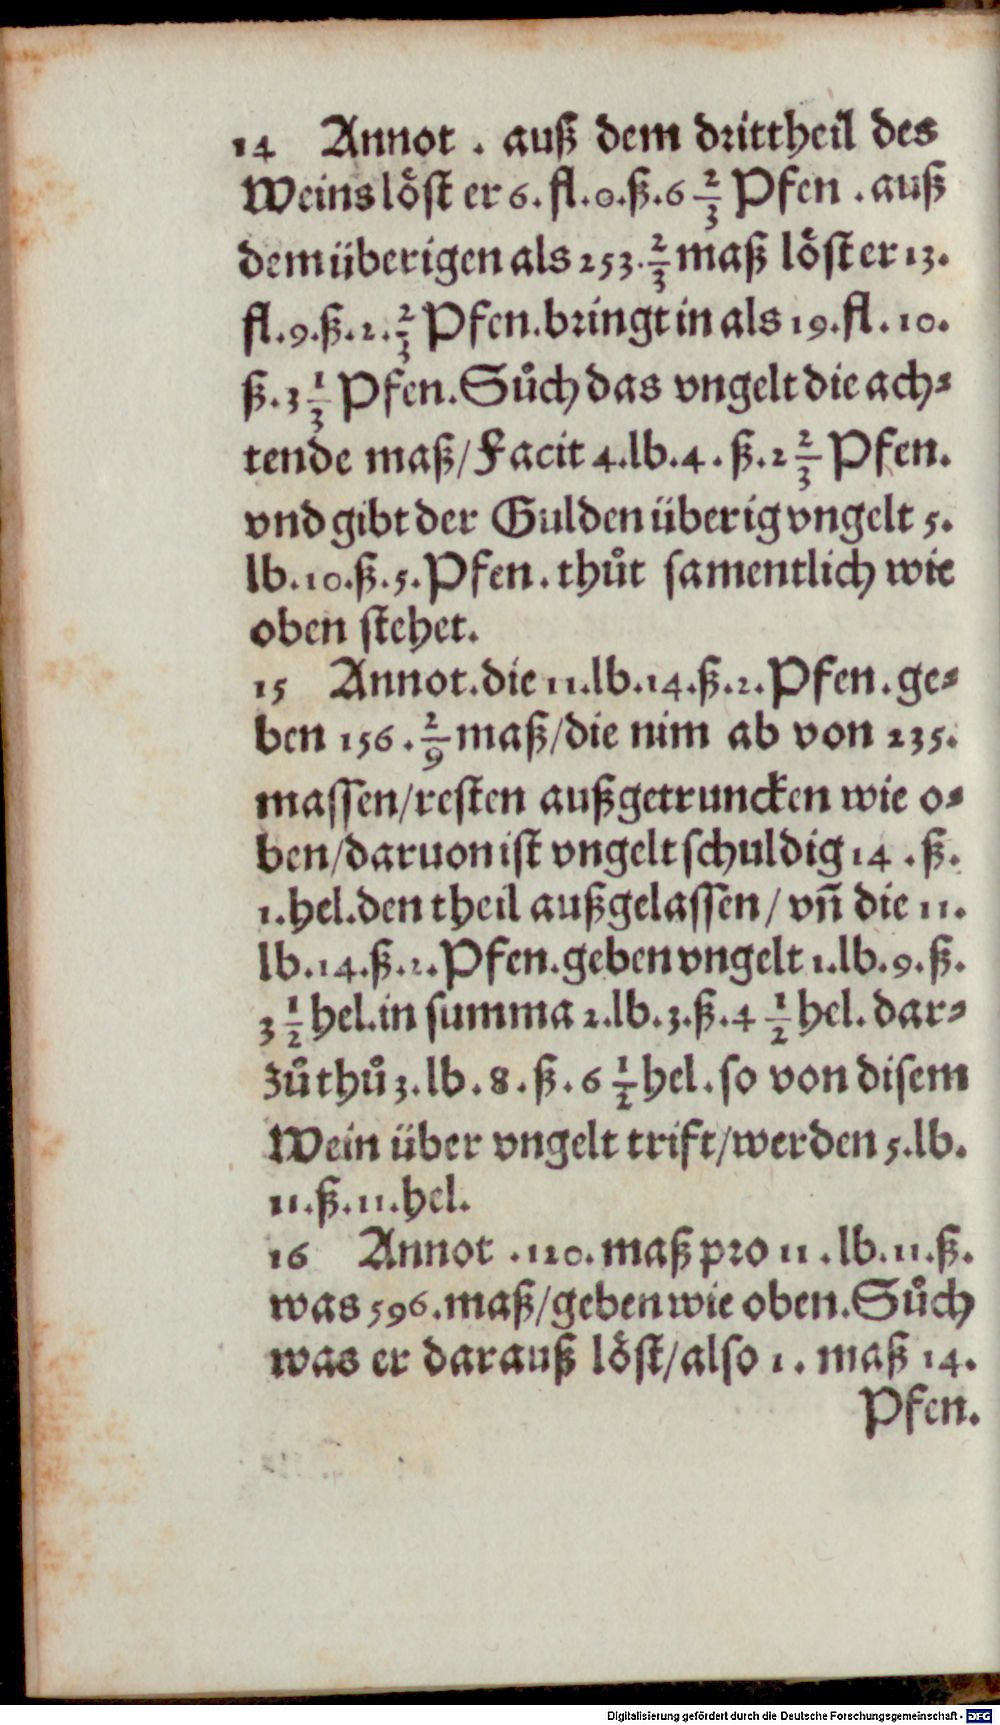 14 Annot . auß dem drittheil des
Weins löst er 6. fl. 0. ß. 6 2/3 Pfen . auß
dem überigen als 253. 2/3 maß löst er 13.
fl. 9. ß. 2. 2/3 Pfen. bringt in als 19. fl. 10.
ß. 3 1/3 Pfen. Sůch das vngelt die ach⸗
tende maß/ Facit 4. lb. 4 . ß. 2 2/3 Pfen.
vnd gibt der Gulden überig vngelt 5.
lb. 10. ß. 5. Pfen . thůt samentlich wie
oben stehet.
15 Annot. die 11. lb. 14. ß. 2. Pfen . ge⸗
ben 156 . 2/9 maß/ die nim ab von 235.
massen/ resten außgetruncken wie o⸗
ben/ daruon ist vngelt schuldig 14 . ß.
1. hel. den theil außgelassen/ vñ die 11.
lb. 14. ß. 2. Pfen. geben vngelt 1. lb. 9. ß.
3 1/2 hel. in summa 2. lb. 3. ß. 4 1/2 hel. dar⸗
zů thů 3. lb . 8 . ß . 6 1/2 hel . so von disem
Wein über vngelt trift/ werden 5. lb.
11. ß. 11. hel.
16 Annot . 120. maß pro 11 . lb. 11. ß.
was 596. maß/ geben wie oben. Sůch
was er darauß löst/ also 1 . maß 14.
Pfen.
Digitalisierung gefördert durch die Deutsche Forschungsgemeinschaft - DFG